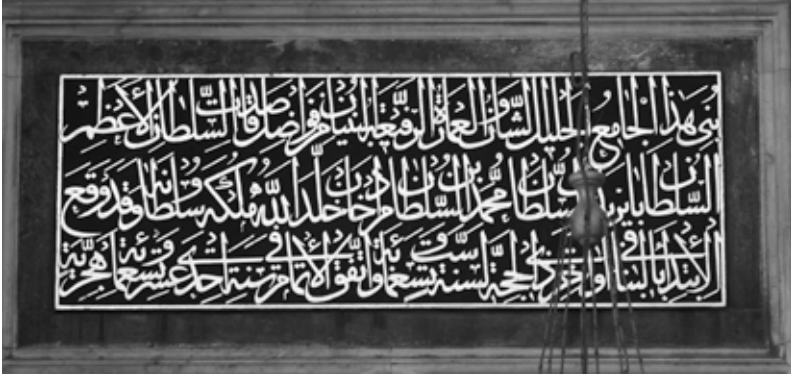 بُنِيَ هَذَا الْجَامِعُ الْجَلِيلُ الشَّأْنِ وَالْعِمَارَةُ الرَّفِيعَةُ الْبُنْيَانِ مِنْ فَوَاضِلِ صَدَقَاتِ السُّلْطَانِ الْأَعْظَمِ
السُّلْطَان بايزيد بن السُّلْطَان مُحَمَّد بن السُّلْطَان مراد خان خَلَّدَ اللَّهُ مُلْكَهُ وَسُلْطَانَهُ وَقَدْ وَقَعَ
الْإِبْتِدَاءُ بِالْبِنَاءِ فِي أواخر ذِي الْحِجَّةِ لِسَنَةِ سِتٍّ وَتِسْعِمِائَةٍ وَاتَّفَقَ الْإِتْمَامُ فِي سَنَةِ إِحْدَى عَشْرَةَ وَتِسْعِمِائَةٍ هِجْرِيَّةٍ